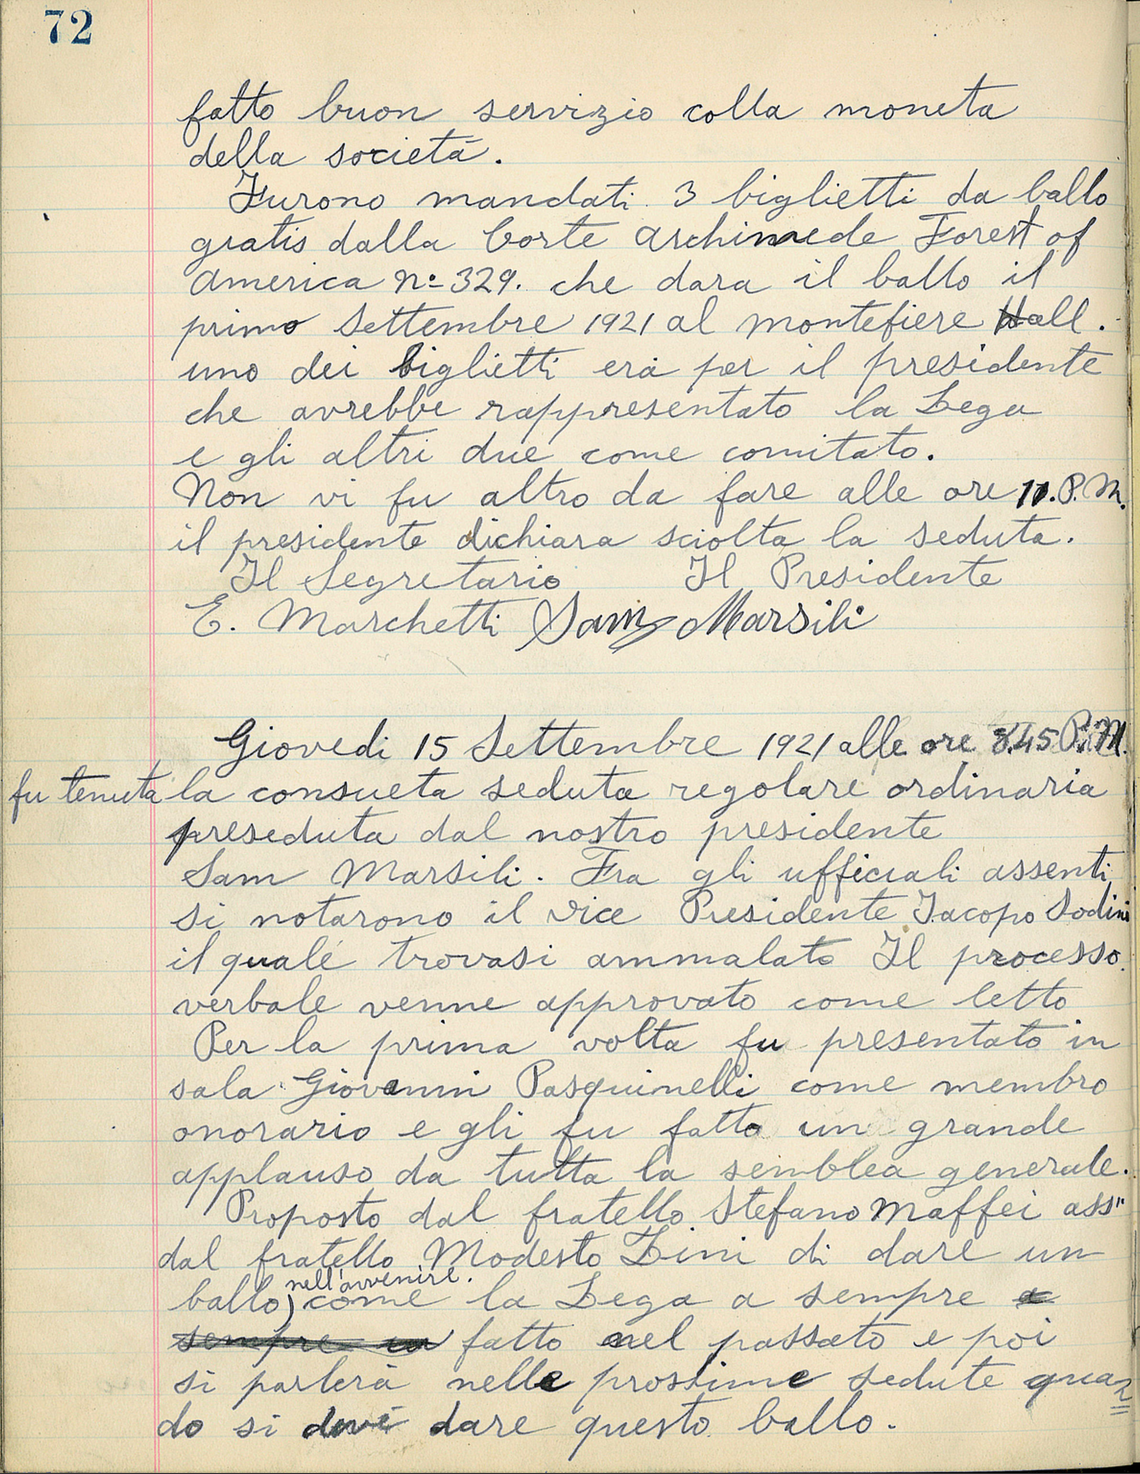 72
fatto buon servizio colla moneta
della società.
Furono mandati 3 biglietti da ballo
gratis dalla Corte Archimede Forest of
America No 329. che dara il ballo il
primo Settembre 1921 al Montefiere Hall.
uno dei biglietti era per il presidente
che avrebbe rappresentato la Lega
e gli altri due come comitato.
Non vi fu altro da fare alle ore 11. P.M.
il presidente dichiara sciolta la seduta.
Il Segretario Il Presidente
E. Marchetti Sam Marsili
Giovedi 15 Settembre 1921 alle ore 8.45 P.M.
fu tenuta la consueta seduta regolare ordinaria
preseduta dal nostro presidente
Sam Marsili. Fra gli ufficiali assenti
si notarono il vice Presidente Jacopo Sodini
il quale trovasi ammalato Il processo
verbale venne approvato come letto
Per la prima volta fu presentato in
sala Giovanni Pasquinelli come membro
onorario e gli fu fatto un grande
applauso da tutta la semblea generale.
Proposto dal fratello Stefano Maffei ass"
dal fratello Modesto Lini di dare un
nell'avvenire.
ballo) come la Lega a sempre a
sempre fatto nel passato e poi
si parlerà nelle prossime sedute quan
do si dare questo ballo.